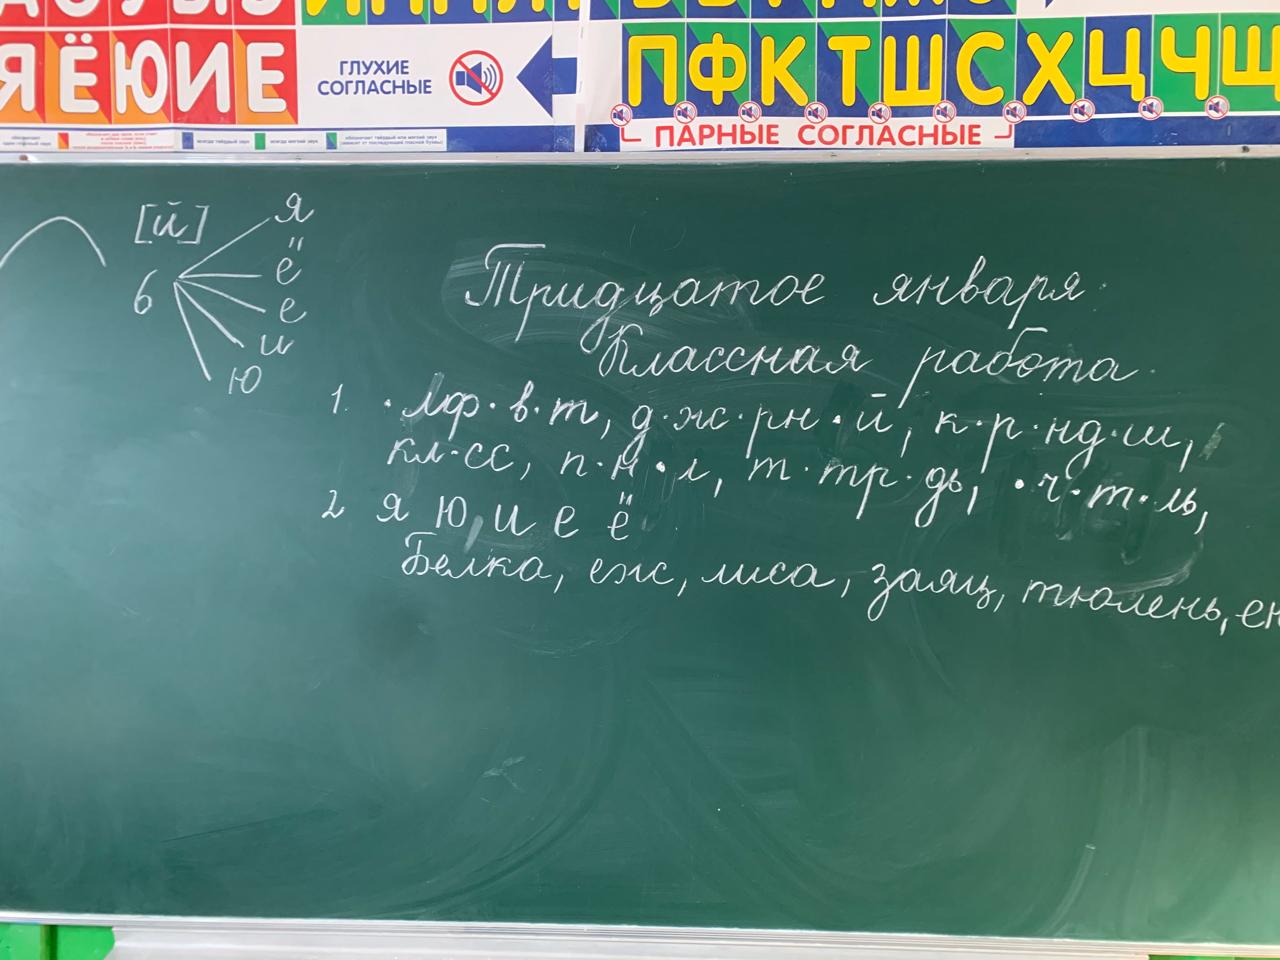 Я Ё Ю И Е
ГЛУХИЕ
СОГЛАСНЫЕ
П Ф К Т Ш С Х Ц Ч Щ
ПАРНЫЕ СОГЛАСНЫЕ
[й]
ь
я
ё
е
и
ю
Тридцатое января.
Классная работа.
1. ·лф·в·т, д·ж·рн·й, к·р·нд·ш,
кл·сс, п·н·л, т·тр·дь, ·ч·т·ль,
2 я ю и е ё
Белка, еж, лиса, заяц, тюлень, ен